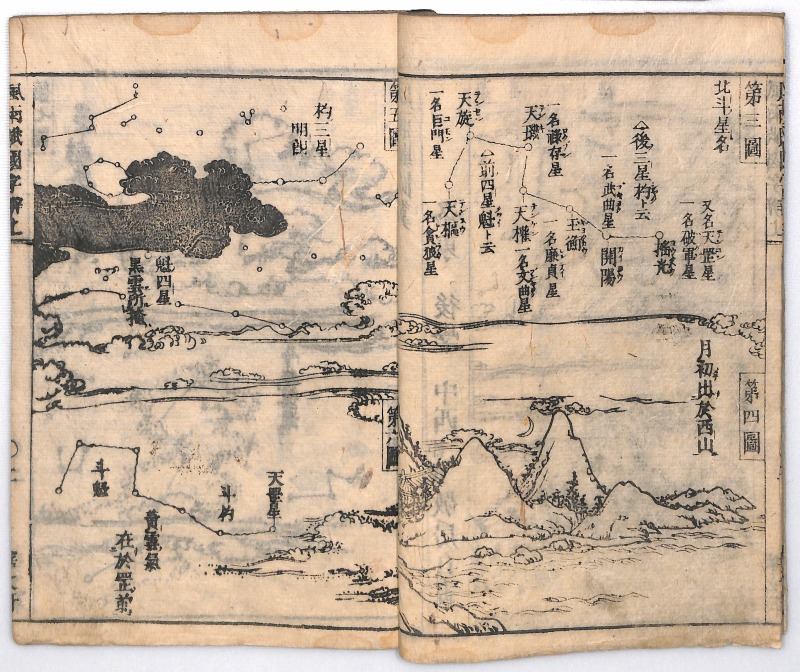 第三圖
北斗星名
又名天罡星
一名破軍星
搖光
開陽
一名武曲星
△後三星杓ト云
玉衡
一名廉貞星
一名祿存星
天璣
天權
一名文曲星
△前四星魁ト云
天旋
一名巨門星
天樞
一名貪狼星
第四圖
月初出於西山
第五圖
杓三星
明朗
魁四星
黑雲所掩
第六圖
天罡星
斗杓
斗魁
黃雲氣
在於罡前